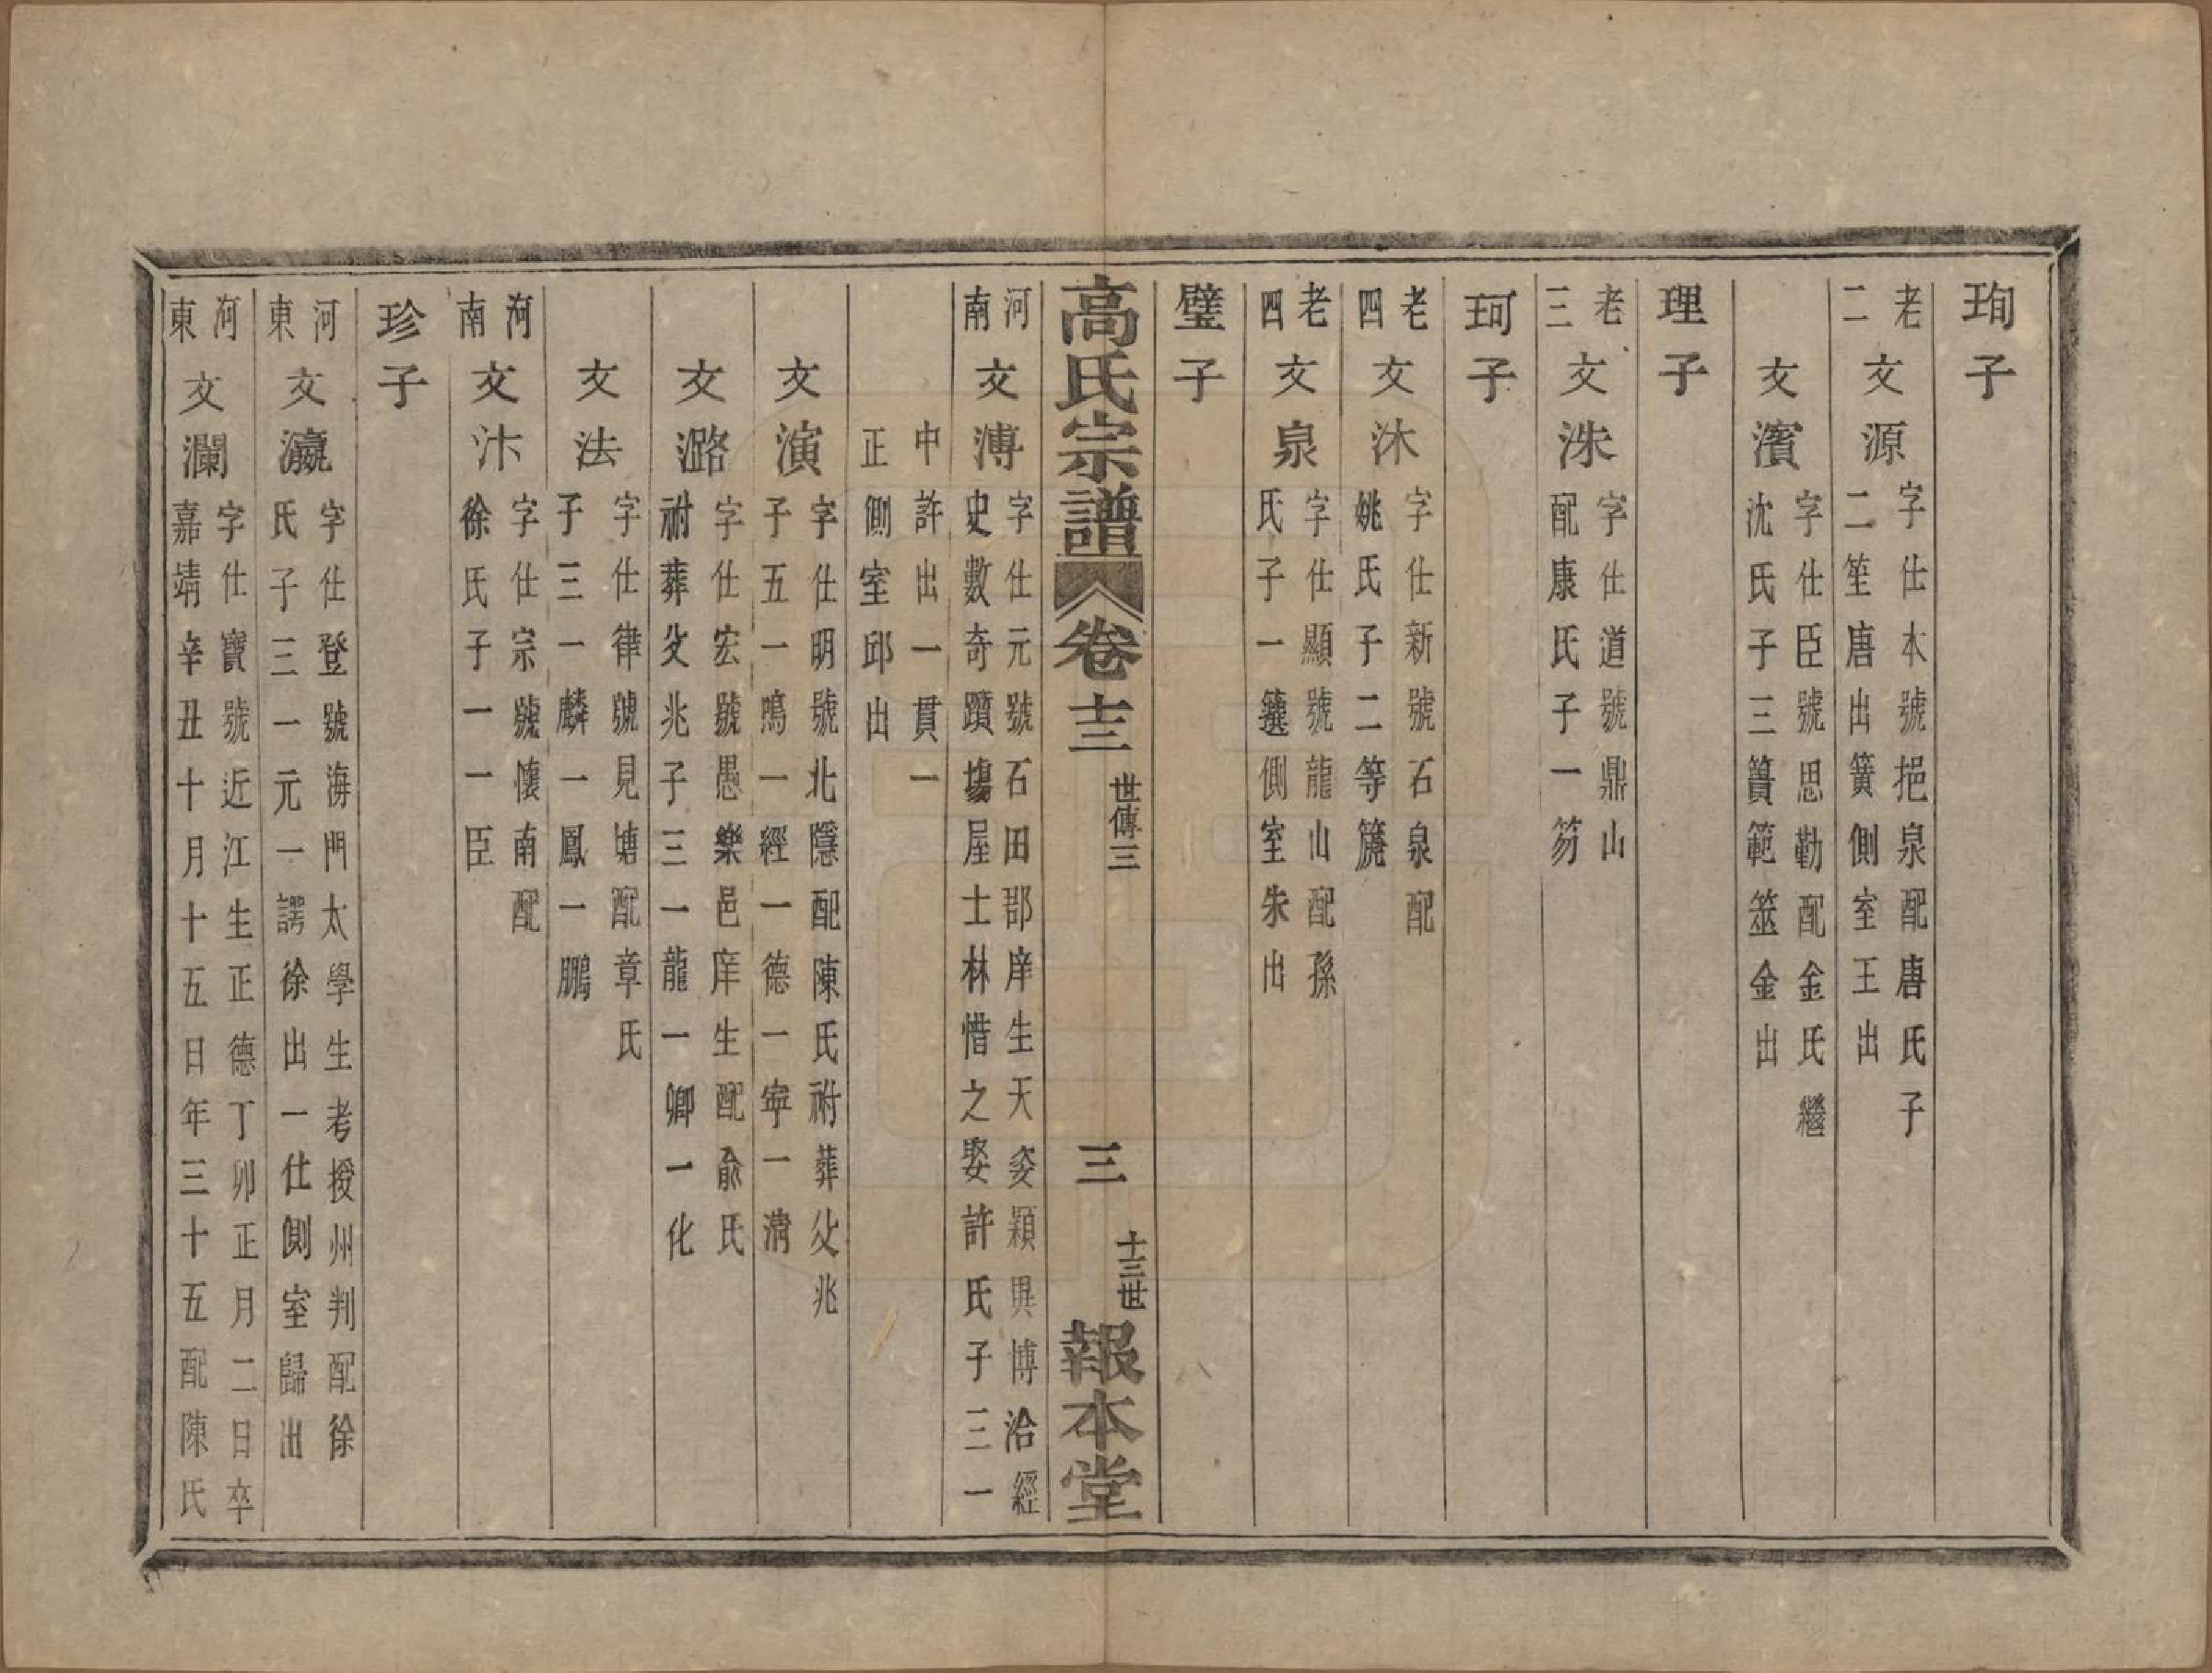 珣子
老二 文源 字仕本號挹泉配唐氏子
二笙唐出簧側室王出
文濱 字仕臣號思勤配金氏繼
沈氏子三簣範筮金出
理子
老三 文洙 字仕道號鼎山
配康氏子一笏
珂子
老四 文沐 字仕新號石泉配
姚氏子二等簏
老四 文泉 字仕顯號龍山配孫
氏子一籛側室朱出
璧子
高氏宗譜 卷十三 世傳三 三 十三世 報本堂
河南 文溥 字仕元號石田郡庠生天姿穎異博洽經
史數奇躓塲屋士林惜之娶許氏子三一
中許出一貫一
正側室邱出
文演 字仕明號北隱配陳氏祔葬父兆
子五一鳴一經一德一寧一清
文潞 字仕宏號愚樂邑庠生配俞氏
祔葬父兆子三一龍一卿一化
文法 字仕律號見塘配章氏
子三一麟一鳳一鵬
河南 文汴 字仕宗號懷南配
徐氏子一一臣
珍子
河東 文瀛 字仕登號海門太學生考授州判配徐
氏子三一元一諤徐出一仕側室歸出
河東 文瀾 字仕寶號近江生正德丁卯正月二日卒
嘉靖辛丑十月十五日年三十五配陳氏